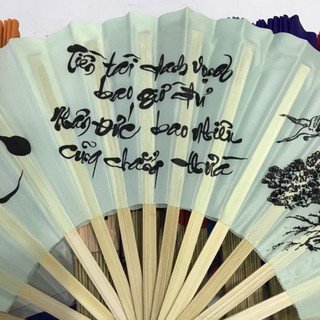 Tiền tài danh vọng
bao giờ đủ
Nhân Đức bao nhiêu
cũng chẳng thừa